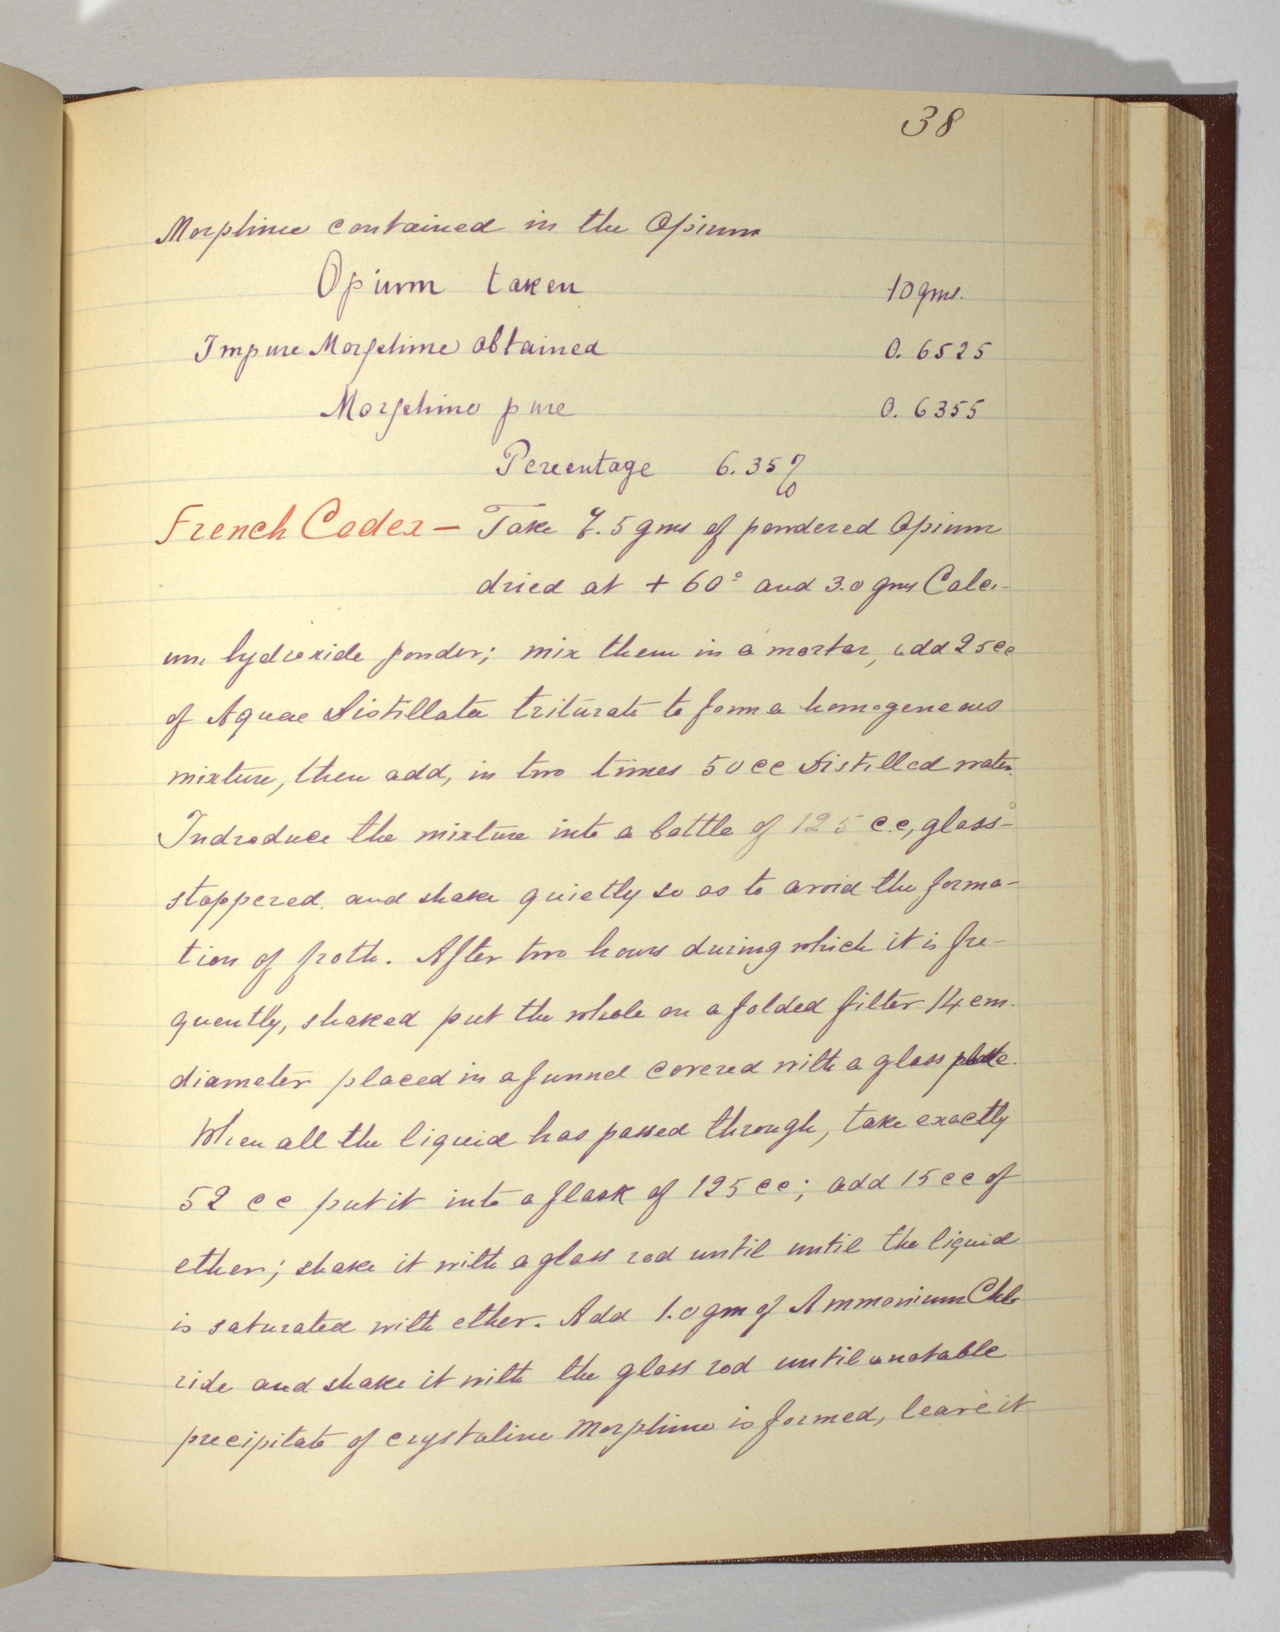 38
Morphine contained in the Opium
Opium taken 10 gms.
Impure Morphine obtained 0.6525
Morphine pure 0.6355
Percentage 6.35%
French Codex — Take 7.5 gms of powdered Opium
dried at + 60° and 3.0 gms Calci-
um hydroxide powder; mix them in a mortar, add 25 cc
of Aquae Distillata triturate to form a homogeneous
mixture, then add, in two times 50 cc Distilled water.
Indroduce the mixture into a bottle of 125 c.c, glass-
stoppered and shake quietly so as to avoid the forma-
tion of froth. After two hours during which it is fre-
quently, shaked put the whole on a folded filter 14 cm.
diameter placed in a funnel covered with a glass plate.
When all the liquid has passed through, take exactly
52 cc put it into a flask of 125 cc; add 15 cc of
ether; shake it with a glass rod until until the liquid
is saturated with ether. Add 1.0 gm of Ammonium Chlo
ride and shake it with the glass rod until a notable
precipitate of crystaline Morphine is formed, leave it